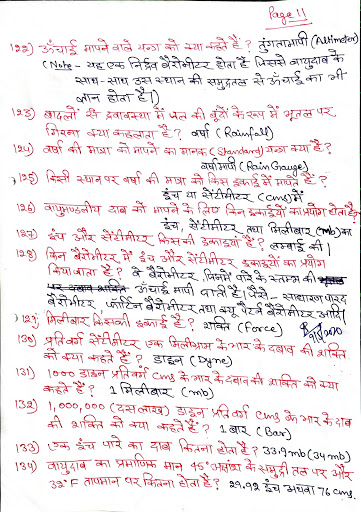 Page 11
122) ऊँचाई मापने वाले यन्त्र को क्या कहते हैं? तुंगतामापी (Altimeter)
(Note - यह एक निर्द्रव बैरोमीटर होता है जिससे वायुदाब के
साथ-साथ उस स्थान की समुद्रतल से ऊँचाई का भी
ज्ञान होता है।)
123) बादलों से द्रवावस्था में जल की बूंदों के रूप में भूतल पर
गिरना क्या कहलाता है? वर्षा (Rainfall)
124) वर्षा की मात्रा को मापने का मानक (Standard) यन्त्र क्या है?
वर्षामापी (Rain Gauge)
125) किसी स्थान पर वर्षा की मात्रा को किस इकाई में मापते हैं?
इंच या सेंटीमीटर (cms) में
126) वायुमण्डलीय दाब को मापने के लिए किन इकाईयों का प्रयोग होता है?
इंच, सेंटीमीटर तथा मिलीबार (mb) का
127) इंच और सेंटीमीटर किसकी इकाईयाँ हैं? लम्बाई की।
128) किन बैरोमीटर में इंच और सेंटीमीटर इकाईयों का प्रयोग
किया जाता है? वे बैरोमीटर, जिनमें पारे के स्तम्भ की
ऊँचाई मापी जाती है, जैसे - साधारण पारद
बैरोमीटर, फोर्टिन बैरोमीटर तथा क्यू पैटर्न बैरोमीटर आदि।
129) मिलीबार किसकी इकाई है? शक्ति (Force)
130) प्रतिवर्ग सेंटीमीटर एक मिलीग्राम के भार के दाब की शक्ति
को क्या कहते हैं? डाइन (Dyne)
131) 1000 डाइन प्रतिवर्ग cms के भार के दबाव की शक्ति को क्या
कहते हैं? 1 मिलीबार (mb)
132) 1,000,000 (दस लाख) डाइन प्रतिवर्ग cms के भार के दाब
की शक्ति को क्या कहते हैं? 1 बार (Bar)
133) एक इंच पारे का दाब कितना होता है? 33.9 mb (34 mb)
134) वायुदाब का प्रमाणिक मान 45° अक्षांश के समुद्री तल पर और
32°F तापमान पर कितना होता है? 29.92 इंच अथवा 76 cms.